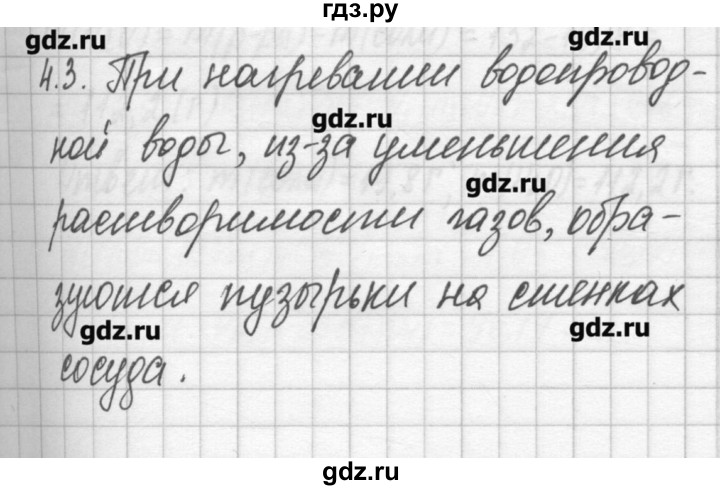 гдз.ру
gdz.ru
gdz.ru
4.3. При нагревании водопровод-
gdz.ru
ной воды, из-за уменьшения
gdz.ru
растворимости газов, обра-
зуются пузырьки на стенках
gdz.ru
gdz.ru
сосуда.
gdz.ru